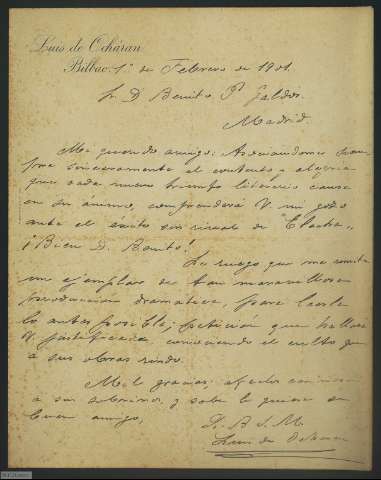 Luis de Ocharan
Bilbao, 1º de Febrero de 1901.
Sr. D Benito P. Galdós.
Madrid.
Mi querido amigo: Asociándome siempre
sinceramente al contento y alegria
que cada nuevo triunfo literario causa
en su ánimo, comprenderá V mi gozo
ante el éxito sin rival de "Electra".
¡Bien D. Benito!
Le ruego que me remita
un ejemplar de tan maravillosa
producción dramática, para leerla
lo antes posible; petición que hallará
V. justificada conociendo el culto que
a sus obras rindo.
Mil gracias; afectos cariñosos
a sus sobrinos, y sabe le quiere su
buen amigo,
Q. B. S. M.
Luis de Ocharan